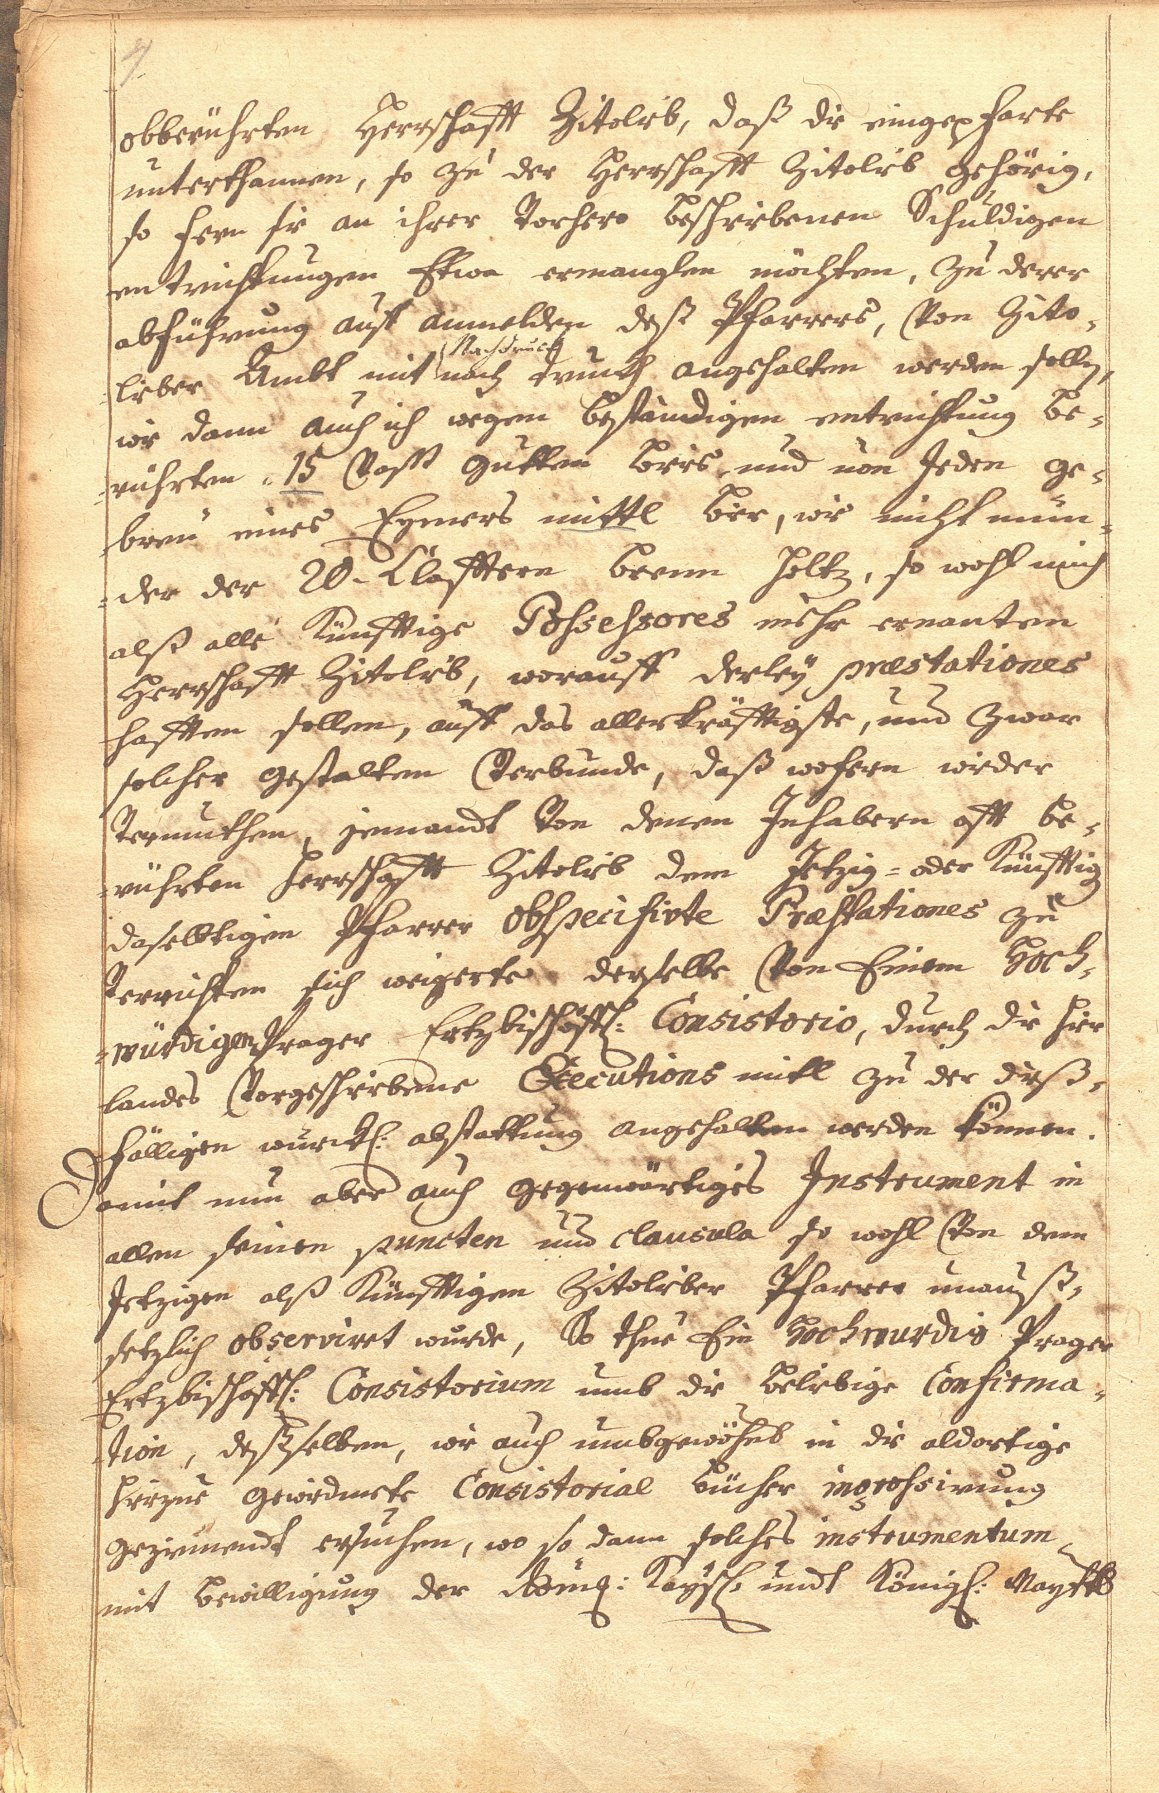 obberührten Herrschafft Zitolieb, daß die eingepfarte
unterthannen, so zu der Herrschafft Zitolieb gehörig,
so fern sie an ihrer vorhero beschriebenen Schuldigen
entrichtungen Etwa ermanglen möchten, zu derer
abführung auff anmelden deß Pfarrers, von Zito-
-lieber Ambt mit nach truckh angehalten werden sollen,
Nachdruck
wie dann auch ich wegen beständigen entrichtung be-
-rührten 15 Vaß gutten biers, und von Jeden ge-
-breu eines Eymers mittl bier, wie nicht mün-
-der der 20 Clafftern brenn holtz, so wohl mich
alß alle Künfftige Possessores mehr ernanten
Herrschafft Zitolieb, worauff derley præstationes
hafften sollen, auff das allerkräfftigste, und zwar
solcher gestalten verbunde, daß wofern wieder
vermuthen, jemandt von denen Inhabern offt be-
-rührten Herrschafft Zitolieb dem Jetzig- oder Künfftig
daselbstigen Pfarrer obspecificirte Præstationes zu
verrichten sich weigerte derselbe von Einem Hoch-
-würdigen Prager Ertzbischöffl: Consistorio, durch die hier
landes vorgeschriebene Executions mittl zu der dieß-
fälligen würckl: abstattung angehalten werden können.
Damit nun aber auch gegenwärtiges Instrument in
allen seinen puncten und clausula so wohl von dem
Jetzigen alß Künfftigen Zitolieber Pfarrer unauß-
setzlich observiret wurde, So thue Ein Hochwurdig Prager
Ertzbischöffl: Consistorium umb die beliebige Confirma-
-tion, deßselben, wie auch umbgewöhnl in die aldortige
hierzue gewiedmete Consistorial bücher ingrossirung
geziemendt ersuchen, wo so dann solches instrumentum
mit bewilligung der Röm: Kaysl: undt Königl: Maytt